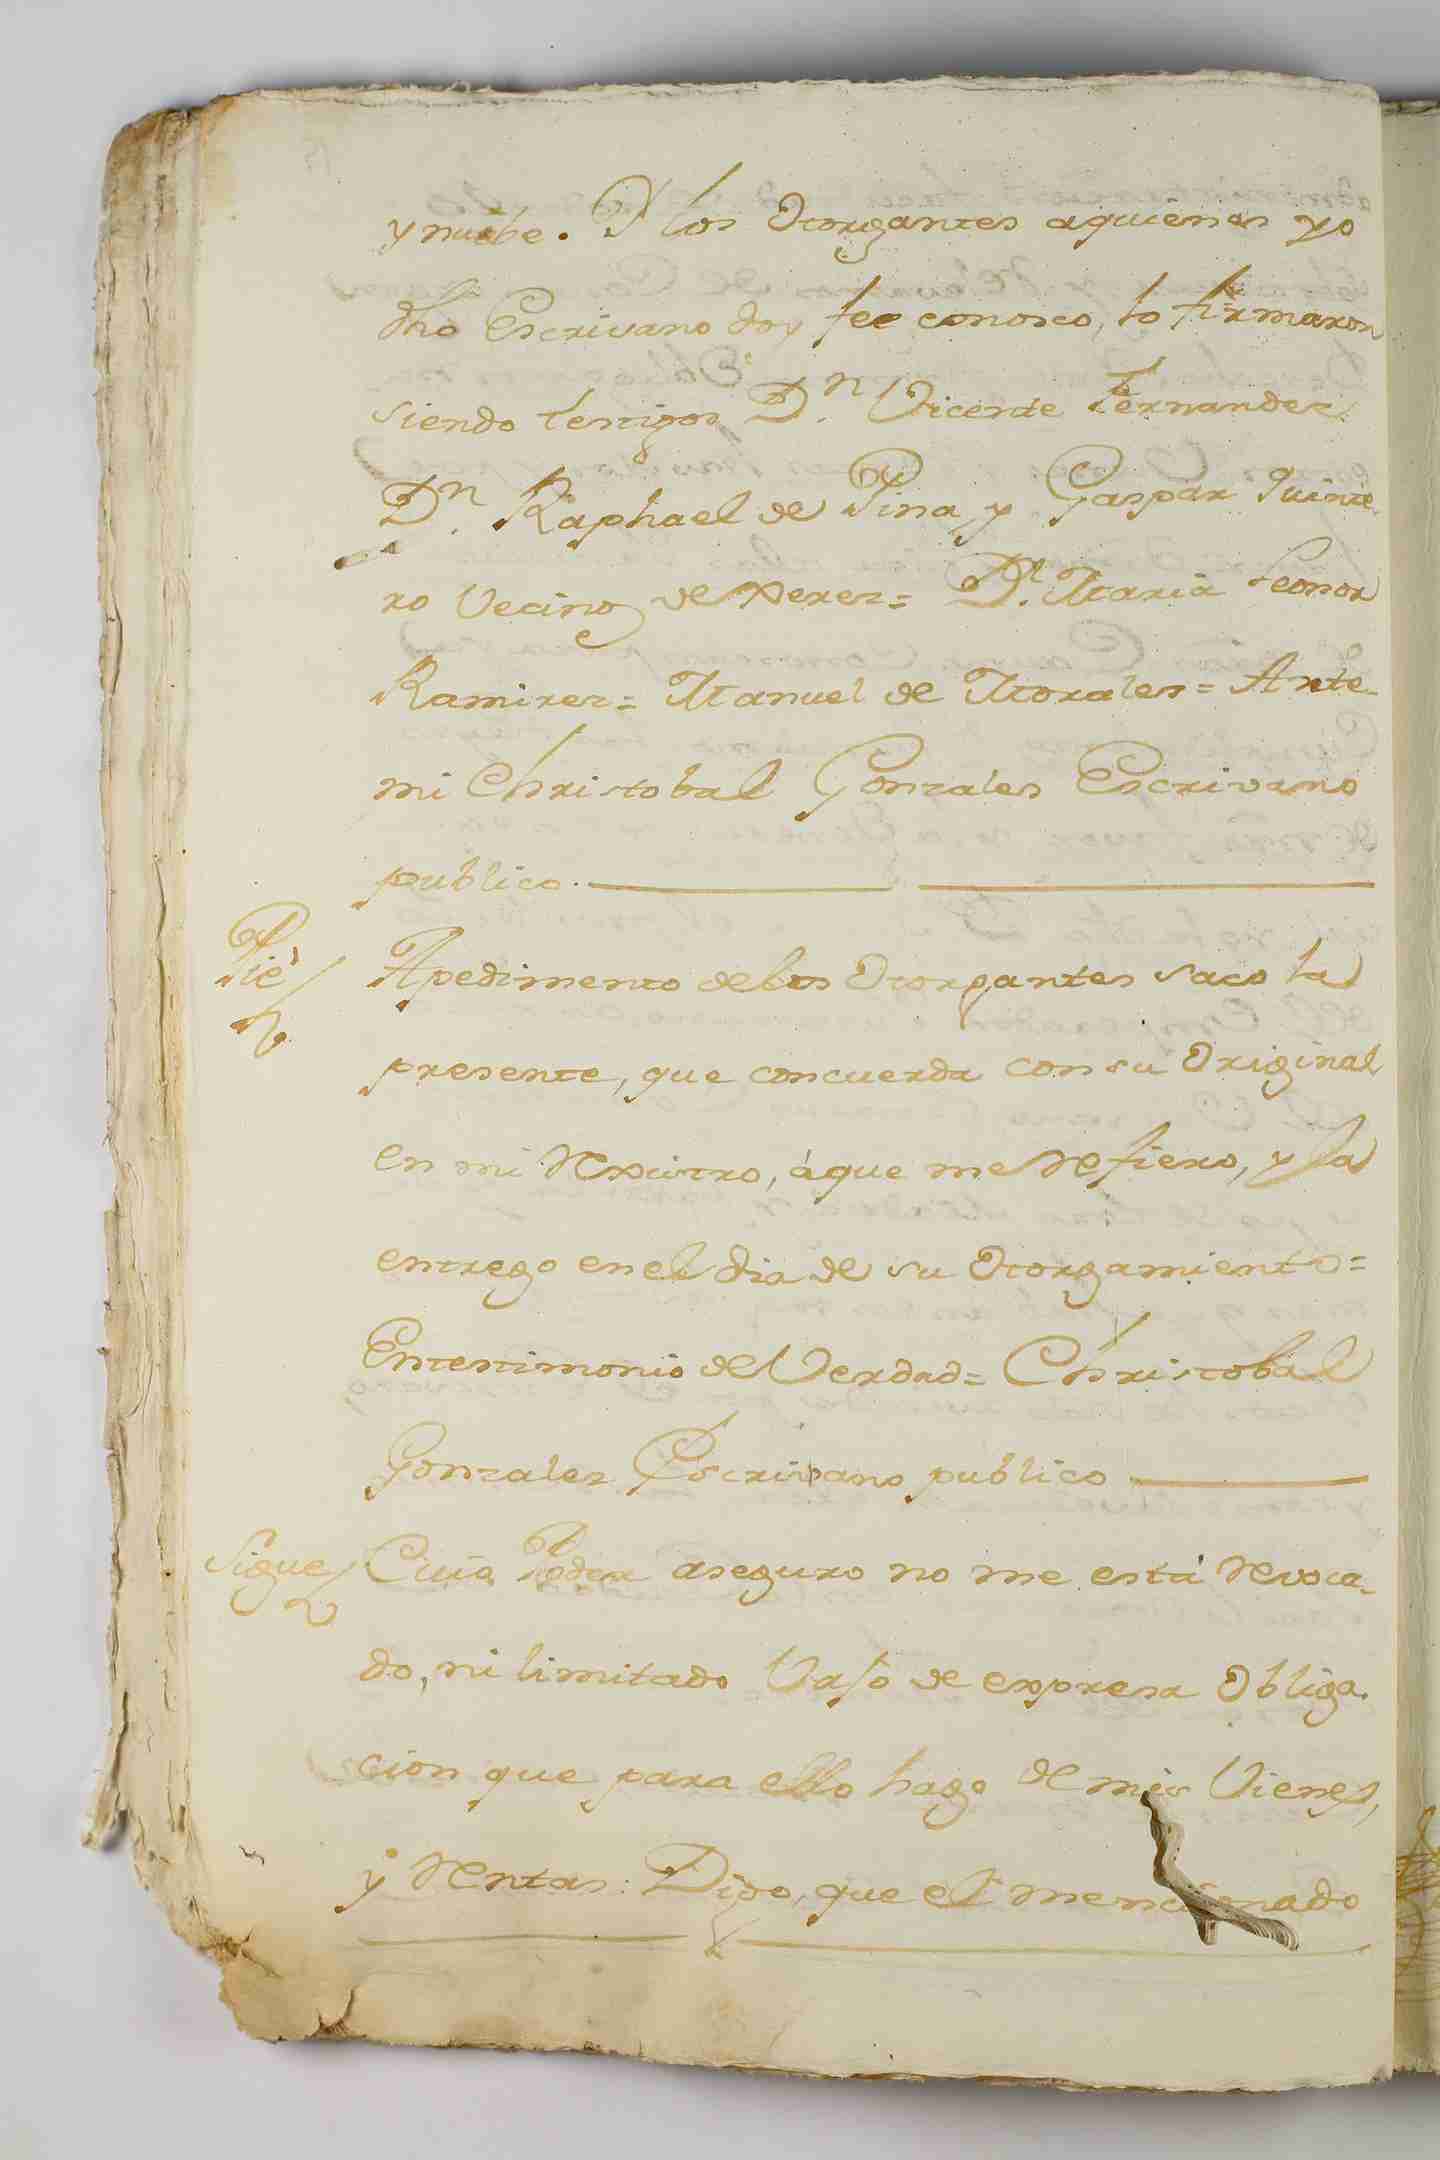 y nuebe. Y los Otorgantes aquienes yo
dho Escrivano doy fee conosco, lo firmaron
siendo testigos Dn. Vicente Fernandez,
Dn. Raphael de Pina, y Gaspar Quinte-
ro Vecinos de Xerez= Da. Maria Leonor
Ramirez= Manuel de Morales= Ante-
mi Christobal Gonzales Escrivano
publico.
Pie Apedimento delos Otorgantes saco la
presente, que concuerda con su Original
en mi Rexistro, áque me Refiero, y la
entrego enel dia de su Otorgamiento=
Entestimonio de Verdad= Christobal
Gonzales Escrivano publico
Sigue Cuio Poder aseguro no me está Revoca-
do, ni limitado Vaxo de expresa Obliga-
cion que para ello hago de mis Vienes,
y Rentas: Digo, que el mencionado